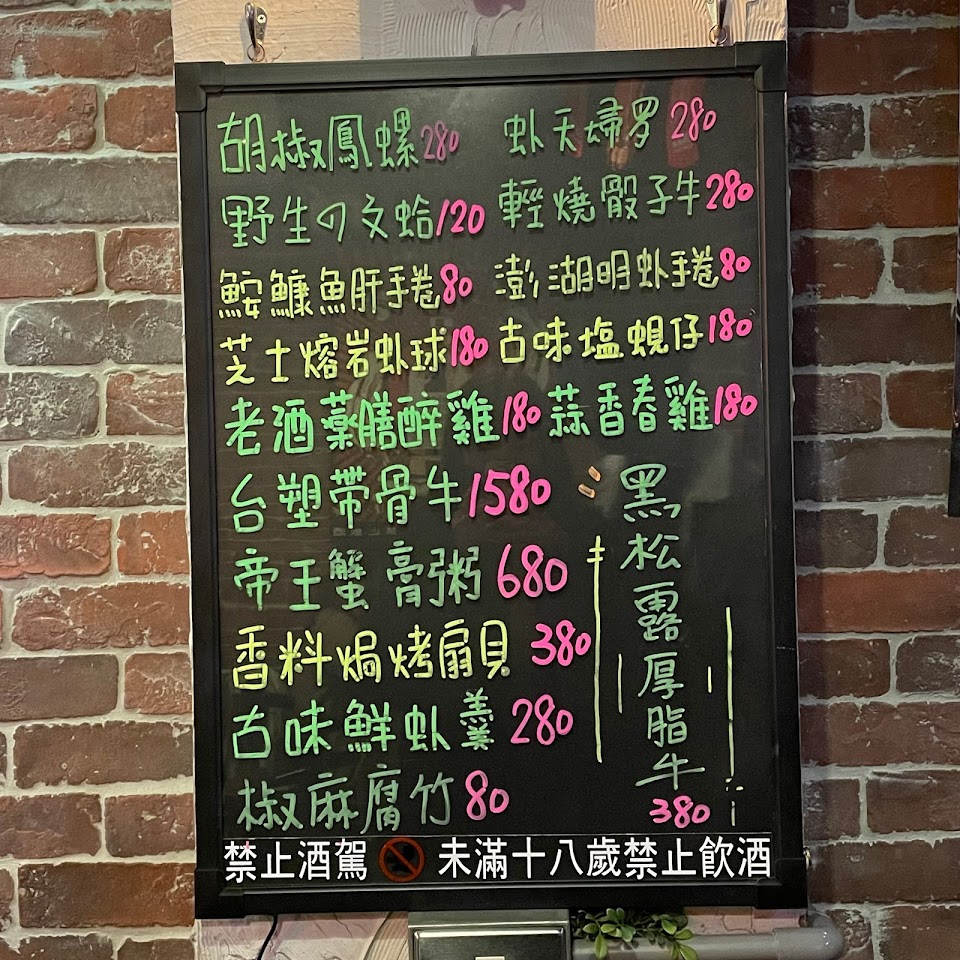 胡椒鳳螺280 虾天婦罗280
野生の文蛤120 輕燒骰子牛280
鮟鱇魚肝手卷80 澎湖明虾手卷80
芝士熔岩虾球180 古味塩蜆仔180
老酒藥膳醉雞180 蒜香春雞180
台塑帶骨牛1580
帝王蟹膏粥680
香料焗烤扇貝380
古味鮮虾羹280
椒麻腐竹80
黑松露厚脂牛
380
禁止酒駕 未滿十八歲禁止飲酒